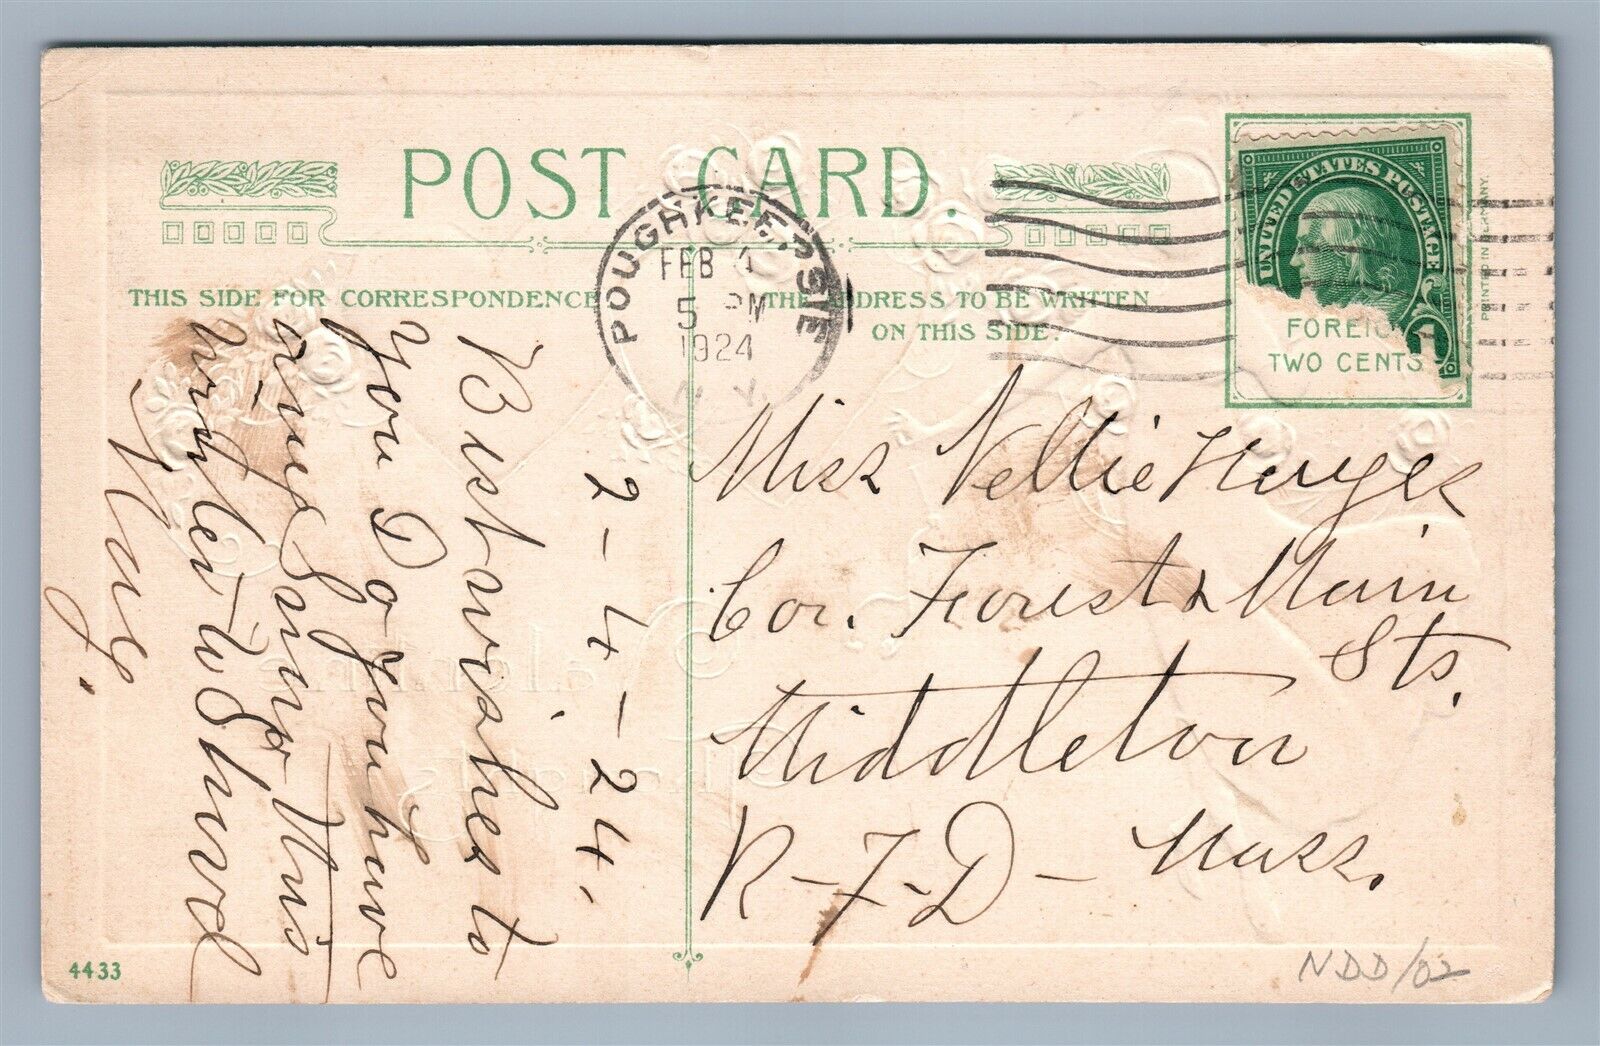 POST CARD.
THIS SIDE FOR CORRESPONDENCE
THE ADDRESS TO BE WRITTEN
ON THIS SIDE.
POUGHKEEPSIE
FEB 4
5 PM
1924
N.Y.
UNITED STATES POSTAGE
FOREIGN
TWO CENTS
PRINTED IN GERMANY.
2-4-24.
Best wishes to
you Do you have
any Samp this
winter W Shurd
May.
Miss Nellie
Cor. Forest & Main
Sts.
Middleton
R-F-D- Mass.
4433
NDD/02